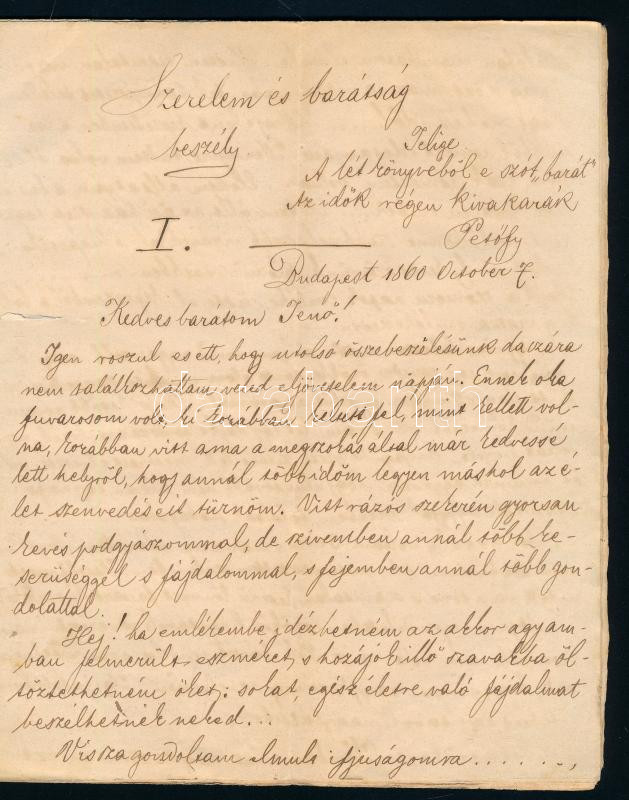 Szerelem és barátság
beszély
Jelige
A lét könyvéből e szót „barát”
Az idők régen kivakarák
Petőfy
I.
Budapest 1860 October 7.
Kedves barátom Jenő!
Igen roszul esett, hogy utolsó összebeszélésünk daczára
nem találkozhattam veled eljövetelem napján. Ennek oka
fuvarosom volt, ki korábban keltett fel, mint kellett vol-
na, korábban vitt ama a megszokás által már kedvessé
lett helyről, hogy annál több időm legyen máshol az é-
let szenvedéseit türnöm. Vitt rázós szekerén gyorsan
kevés podgyászommal, de szivemben annál több ke-
serüséggel s fájdalommal, s fejemben annál több gon-
dolattal.
Hej! ha emlékembe idézhetném az akkor agyam-
ban felmerült eszméket, s hozájok illő szavakba öl-
töztethetném őket: sokat, egész életre való fájdalmat
beszélhetnék neked...
Visszagondoltam elmult ifjuságomra . . . . . . ,
darabanth